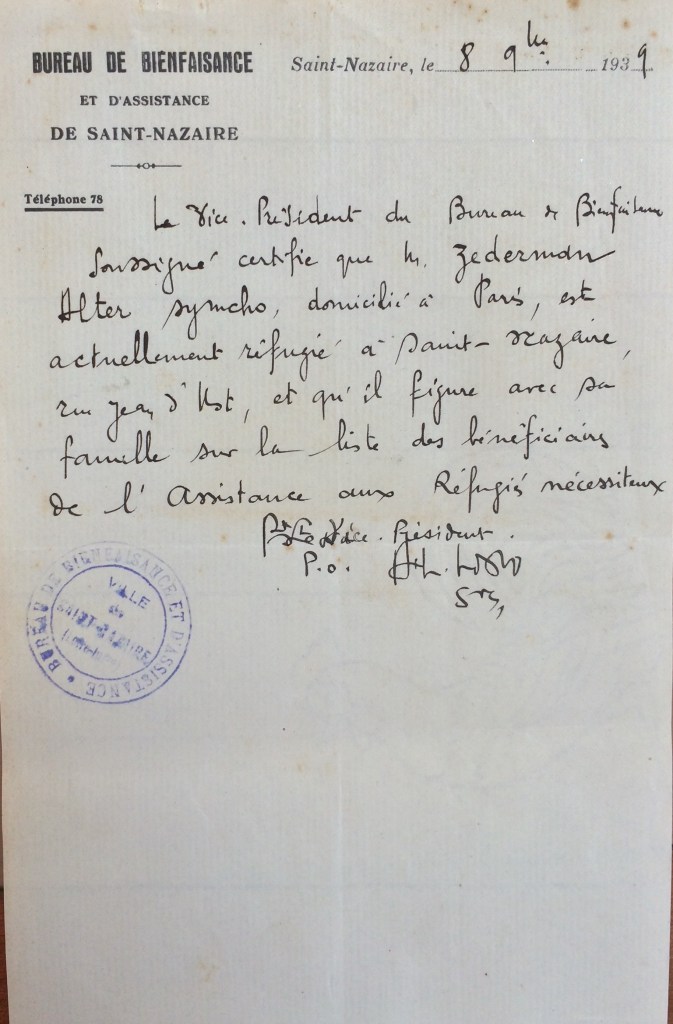 BUREAU DE BIENFAISANCE
ET D'ASSISTANCE
DE SAINT-NAZAIRE
Saint-Nazaire, le 8 9bre 1939
Téléphone 78
Le Vice-Président du Bureau de Bienfaisance
soussigné certifie que M. Zederman
Alter Symcho, domicilié à Paris, est
actuellement réfugié à Saint-Nazaire,
rue Jean d'Ust, et qu'il figure avec sa
famille sur la liste des bénéficiaires
de l'Assistance aux Réfugiés nécessiteux
Le Vice-Président.
P.O.
BUREAU DE BIENFAISANCE ET D'ASSISTANCE
VILLE
de
SAINT-NAZAIRE